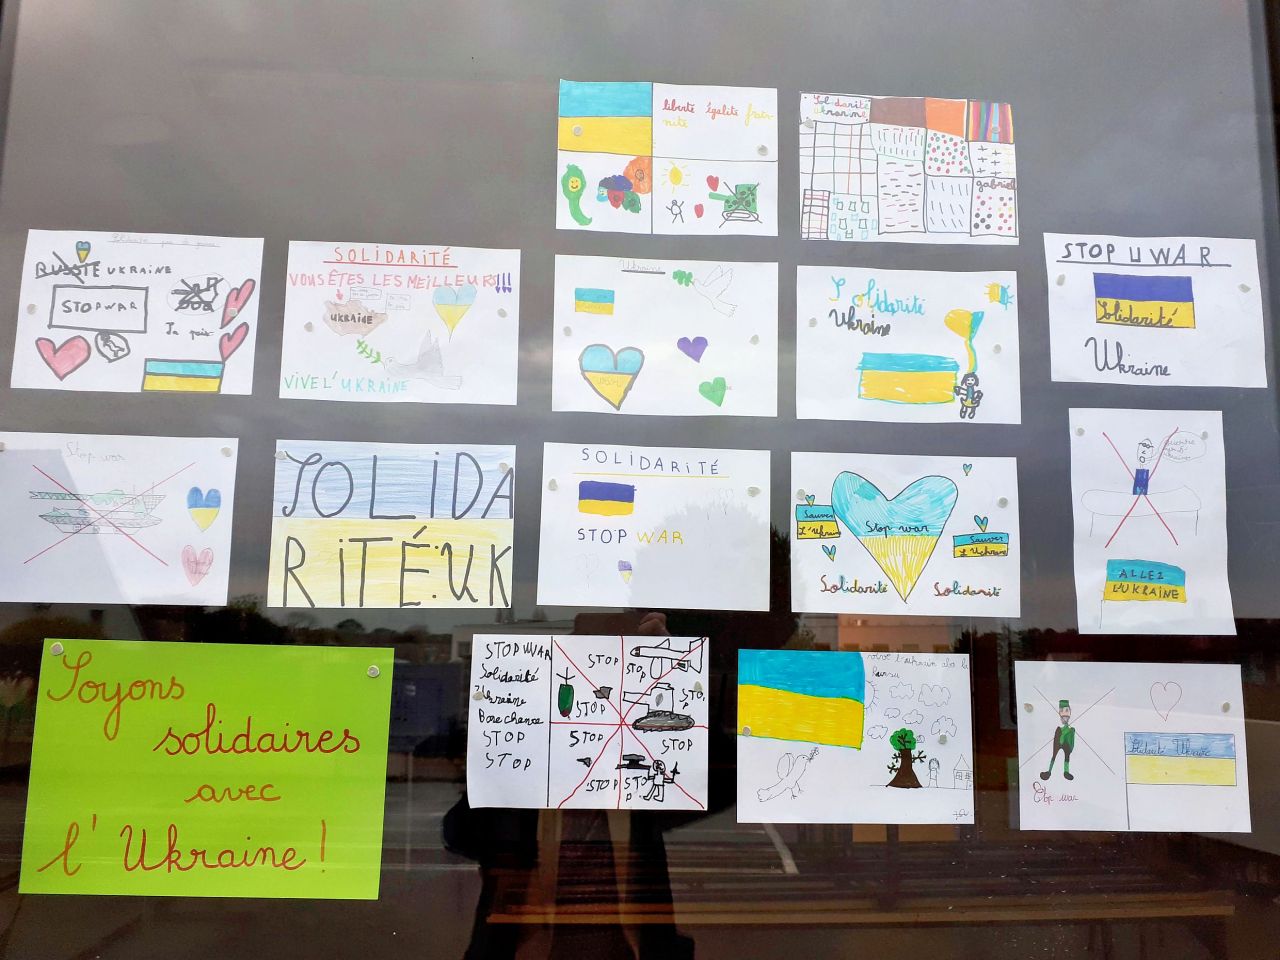 liberté égalite frater
nité
Solidarité
Ukraine
gabriel
RUSSIE UKRAINE
STOP WAR
La paix
SOLIDARITÉ
VOUS ÊTES LES MEILLEURS!!!
UKRAINE
VIVE L'UKRAINE
Ukraine
Solidarité
Ukraine
STOP U WAR
Solidarité
Ukraine
Stop war
SOLIDA
RITÉ:UK
SOLIDARITÉ
STOP WAR
Stop war
Sauver
L'Ukraine
Sauver
L'Ukraine
Solidarité Solidarité
ALLEZ
L'UKRAINE
Soyons
solidaires
avec
l'Ukraine!
STOP UWAR
Solidarité
Ukraine
Bone chance
STOP
STOP
STOP
STOP
STOP
STOP
STOP
STOP
STOP
STOP
vive l'ukrain aba la
Solidarité Ukraine
Stop war